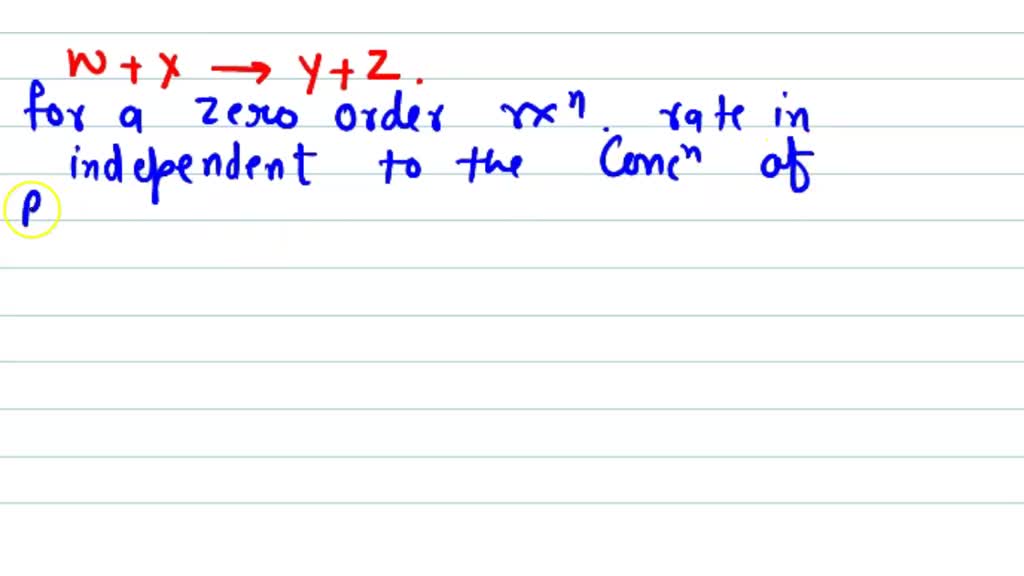 W + X → Y + Z.
for a zero order rxⁿ. rate in
independent to the Concⁿ of
P